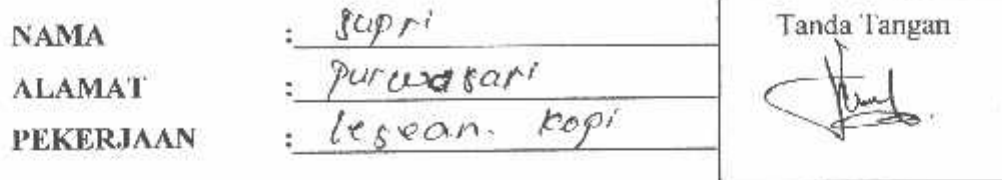 NAMA : Supri
ALAMAT : Purwasari
PEKERJAAN : lesean. kopi
Tanda Tangan